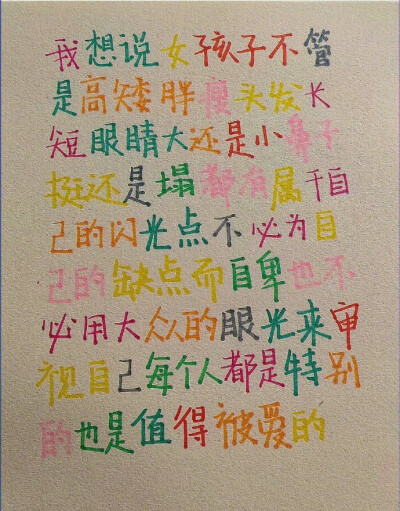 我想说女孩子不管
是高矮胖瘦头发长
短眼睛大还是小鼻子
挺还是塌都有属于自
己的闪光点不必为自
己的缺点而自卑也不
必用大众的眼光来审
视自己每个人都是特别
的也是值得被爱的